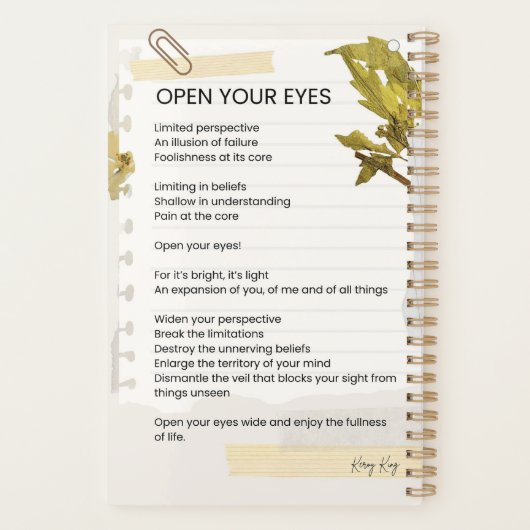 OPEN YOUR EYES
Limited perspective
An illusion of failure
Foolishness at its core
Limiting in beliefs
Shallow in understanding
Pain at the core
Open your eyes!
For it's bright, it's light
An expansion of you, of me and of all things
Widen your perspective
Break the limitations
Destroy the unnerving beliefs
Enlarge the territory of your mind
Dismantle the veil that blocks your sight from
things unseen
Open your eyes wide and enjoy the fullness
of life.
Keroy King